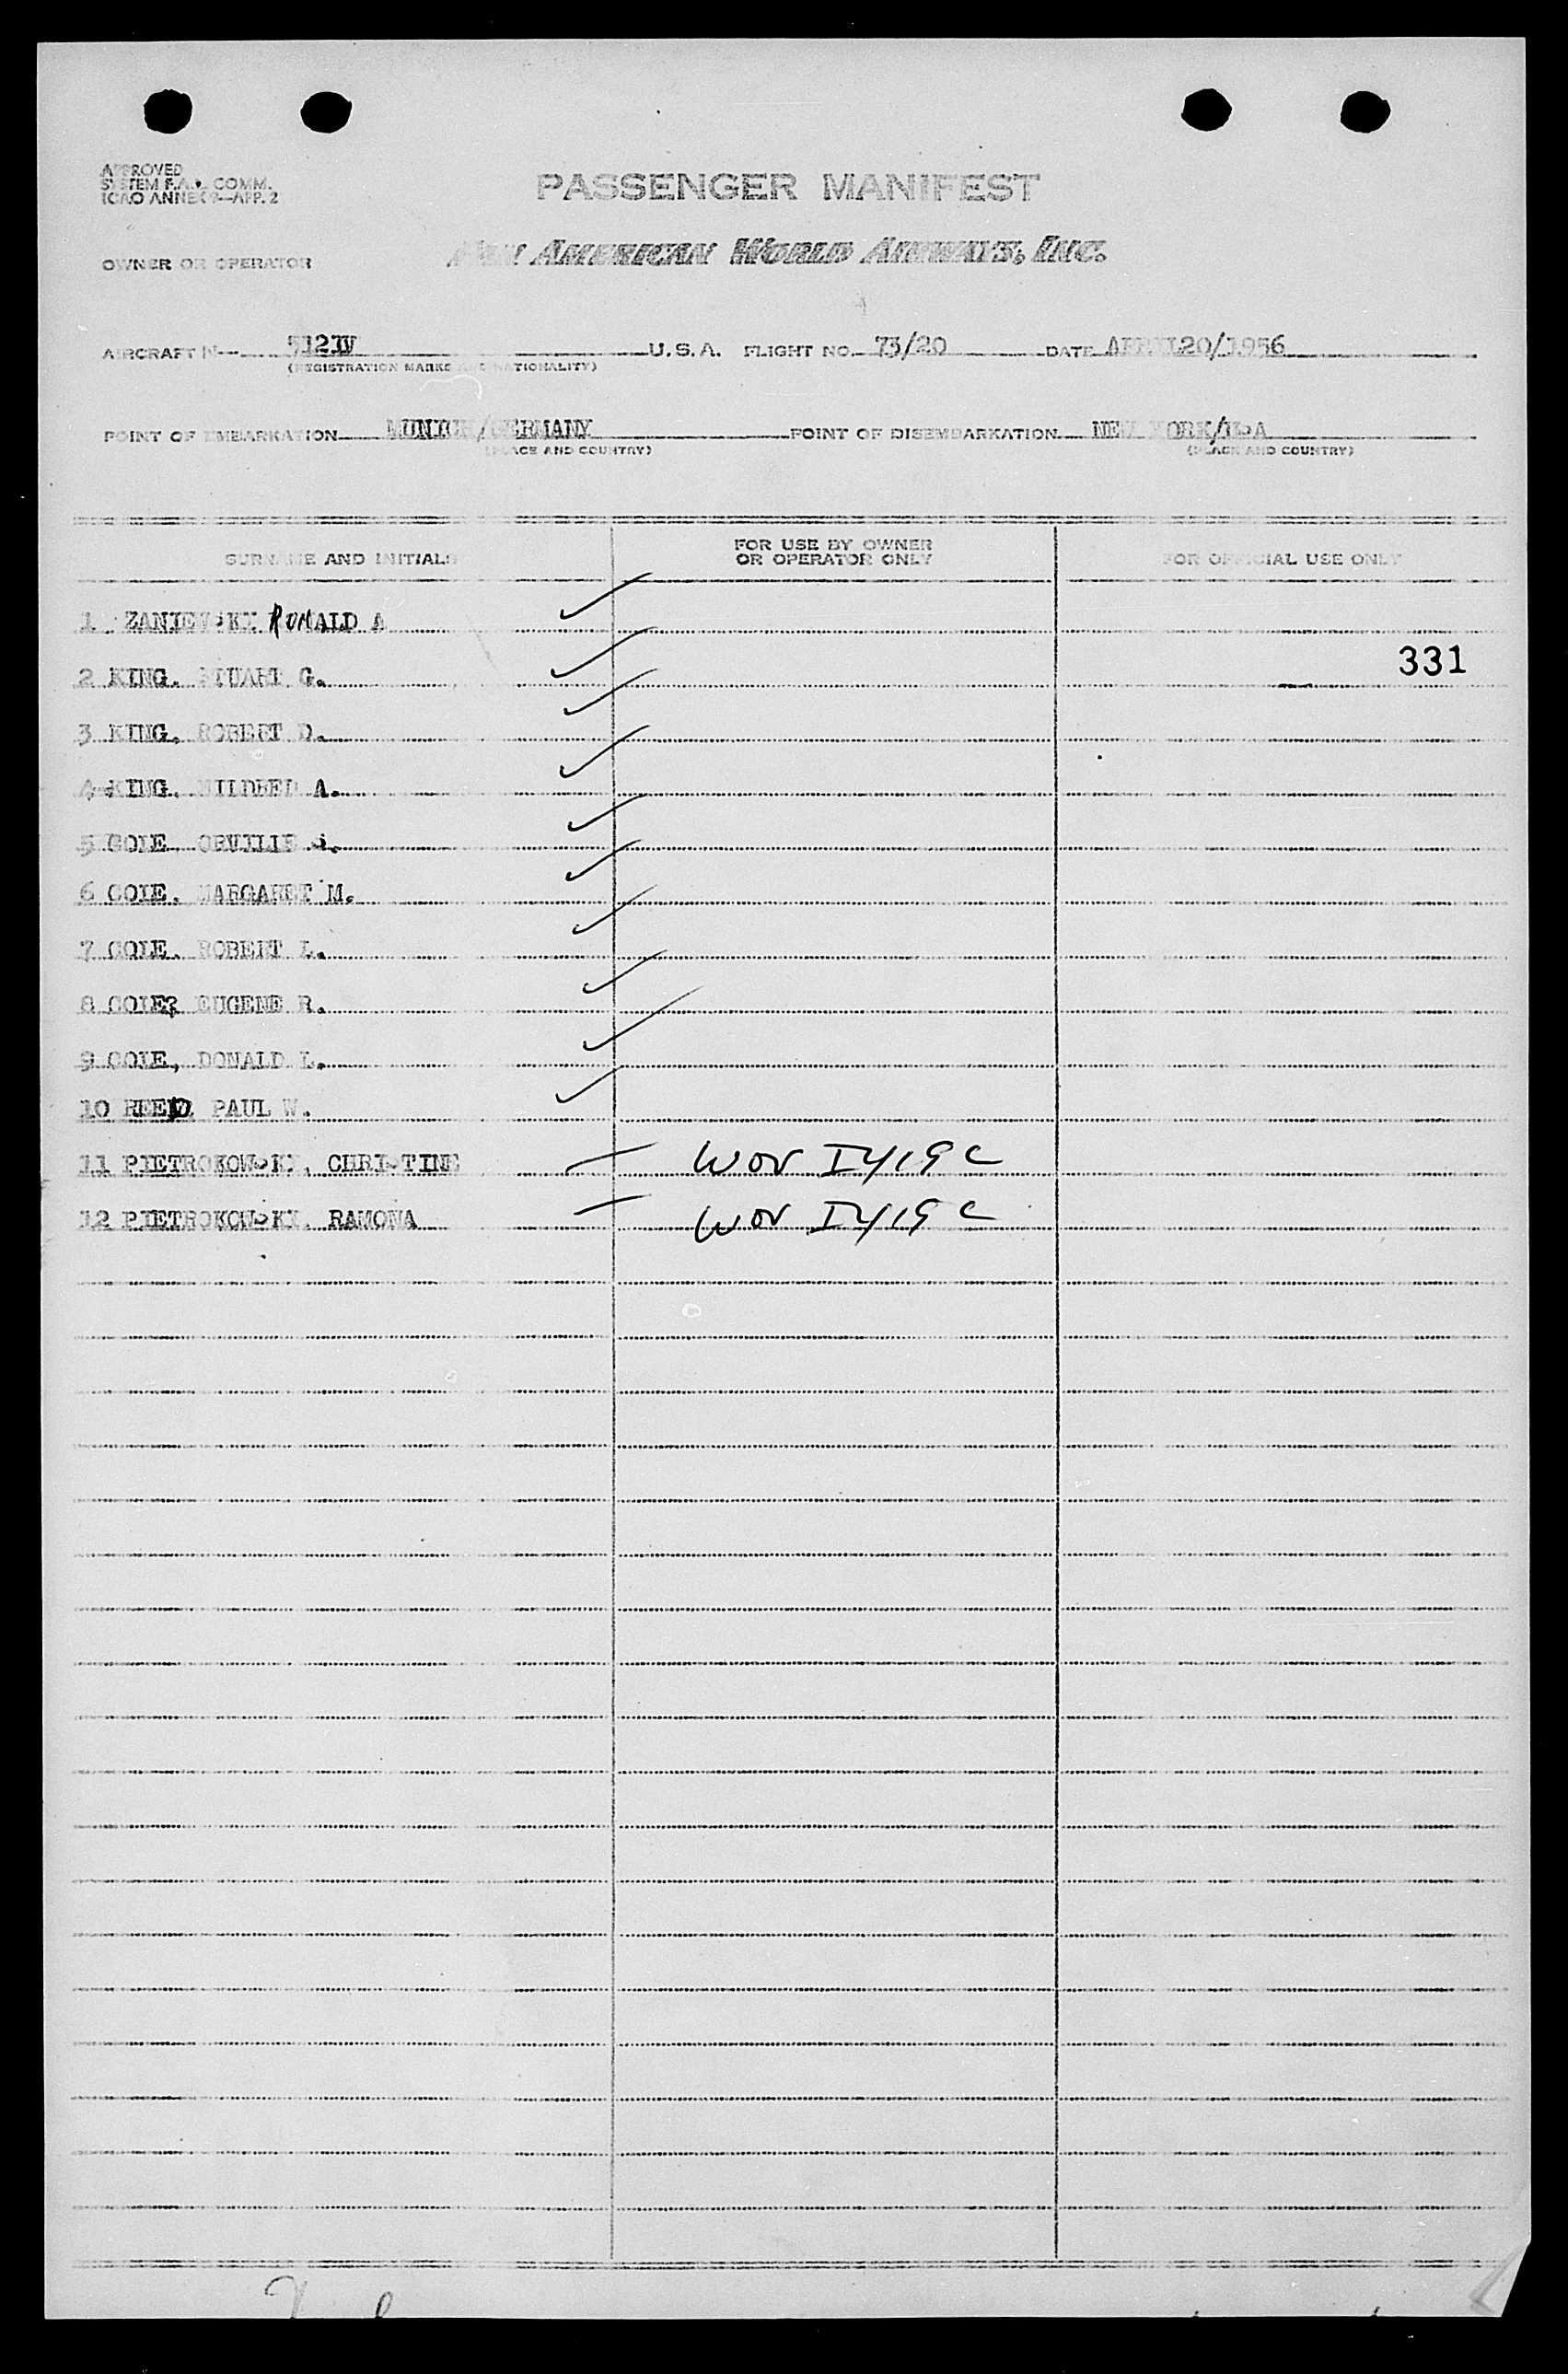 APPROVED
SYSTEM F.A.L. COMM.
ICAO ANNEX 9—APP. 2
PASSENGER MANIFEST
OWNER OR OPERATOR
PAN AMERICAN WORLD AIRWAYS, INC.
AIRCRAFT N— U.S.A. FLIGHT NO. 73/20 DATE APRIL20/1956
(REGISTRATION MARKS AND NATIONALITY)
POINT OF EMBARKATION MUNICH/GERMANY POINT OF DISEMBARKATION NEW YORK/USA
(PLACE AND COUNTRY) (PLACE AND COUNTRY)
SURNAME AND INITIALS FOR USE BY OWNER OR OPERATOR ONLY FOR OFFICIAL USE ONLY
1 ZANIEWSKI RONALD A
331
2 KING. STUART G.
3 KING, ROBERT D.
4 KING, MILDRED A.
5 COLE, ORVILLE S.
6 COLE, MARGARET M.
7 COLE, ROBERT L.
8 COLE? EUGENE R.
9 COLE, DONALD L.
10 REED, PAUL W.
11 PIETROKOWSKI, CHRISTINE WOV
12 PIETROKOWSKI, RAMONA WOV